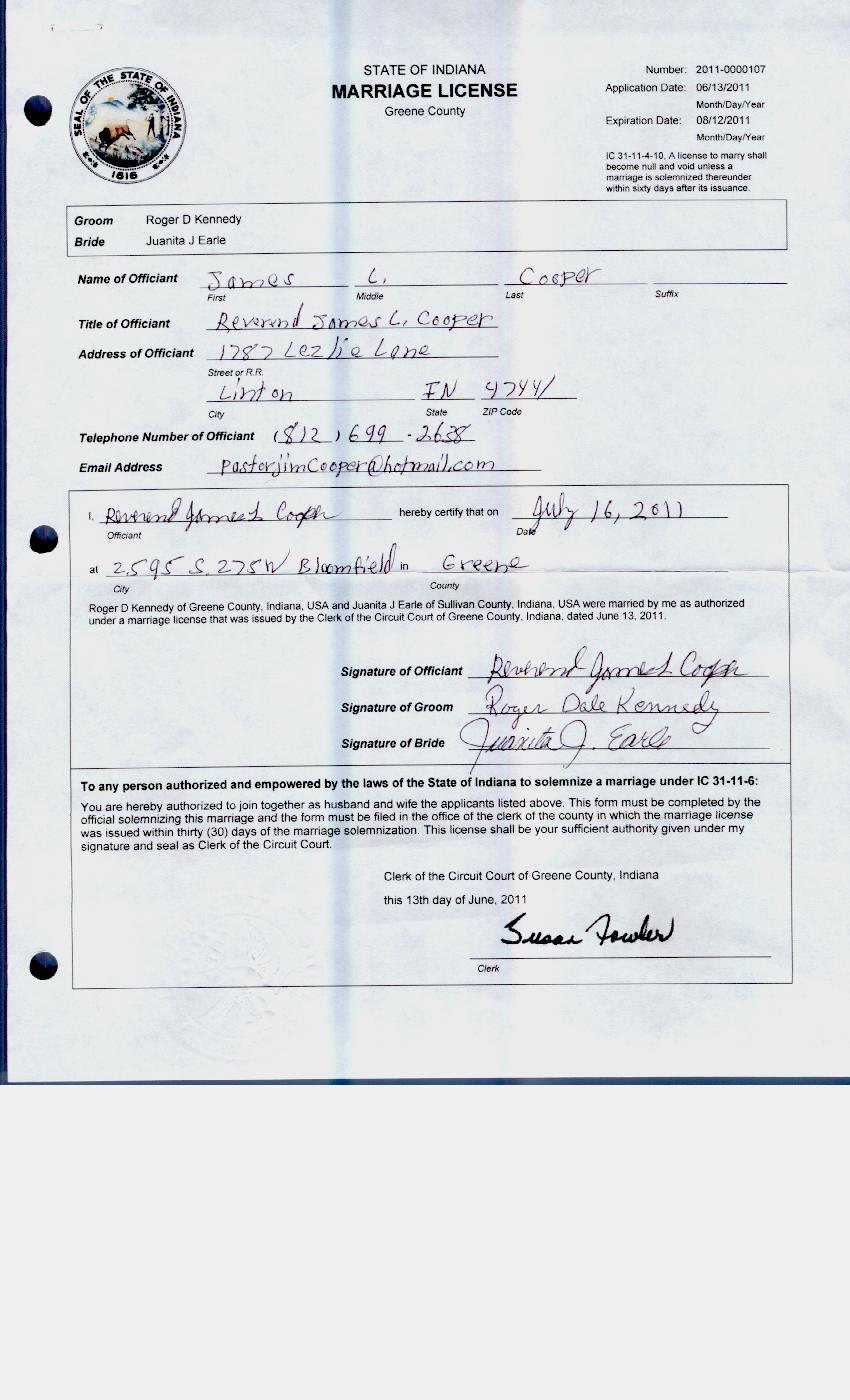 STATE OF INDIANA
MARRIAGE LICENSE
Greene County
SEAL OF THE STATE OF INDIANA
1816
Number: 2011-0000107
Application Date: 06/13/2011
Month/Day/Year
Expiration Date: 08/12/2011
Month/Day/Year
IC 31-11-4-10, A license to marry shall
become null and void unless a
marriage is solemnized thereunder
within sixty days after its issuance.
Groom Roger D Kennedy
Bride Juanita J Earle
Name of Officiant James L. Cooper
First Middle Last Suffix
Title of Officiant Reverend James L. Cooper
Address of Officiant 1787 Lezlie Lane
Street or R.R.
Linton IN 47441
City State ZIP Code
Telephone Number of Officiant (812) 699 - 2638
Email Address PastorjimCooper@hotmail.com
I, Reverend James L Cooper hereby certify that on July 16, 2011
Officiant Date
at 2595 S. 275W Bloomfield in Greene
City County
Roger D Kennedy of Greene County, Indiana, USA and Juanita J Earle of Sullivan County, Indiana, USA were married by me as authorized
under a marriage license that was issued by the Clerk of the Circuit Court of Greene County, Indiana, dated June 13, 2011.
Signature of Officiant Reverend James L Cooper
Signature of Groom Roger Dale Kennedy
Signature of Bride Juanita J. Earle
To any person authorized and empowered by the laws of the State of Indiana to solemnize a marriage under IC 31-11-6:
You are hereby authorized to join together as husband and wife the applicants listed above. This form must be completed by the
official solemnizing this marriage and the form must be filed in the office of the clerk of the county in which the marriage license
was issued within thirty (30) days of the marriage solemnization. This license shall be your sufficient authority given under my
signature and seal as Clerk of the Circuit Court.
Clerk of the Circuit Court of Greene County, Indiana
this 13th day of June, 2011
Susan Fowler
Clerk